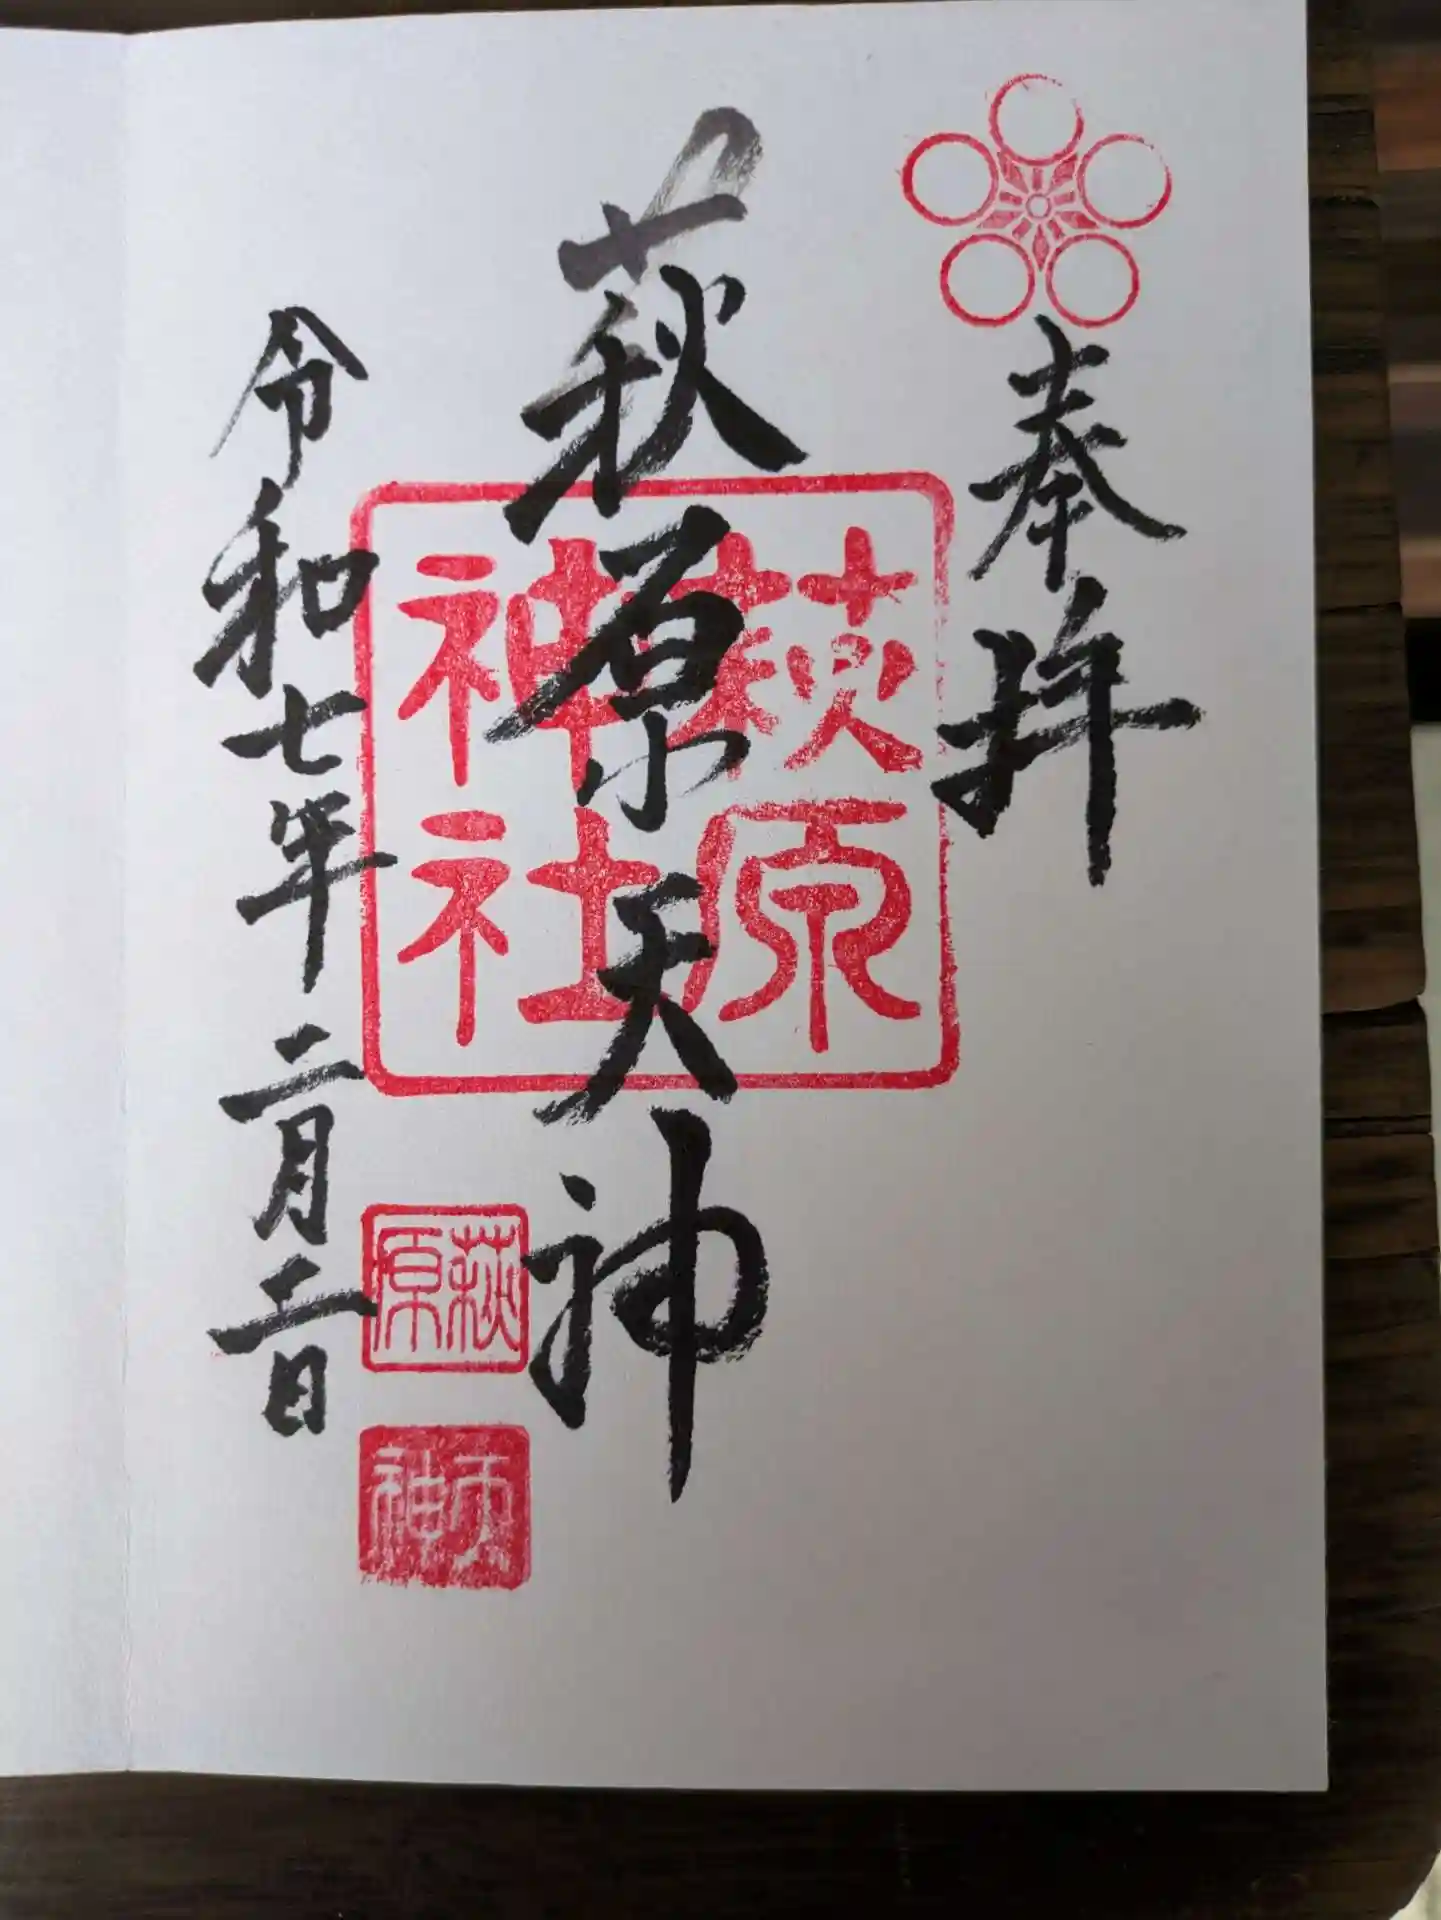 奉拝
萩原天神
萩原
神社
萩原
天神
令和七年二月二日